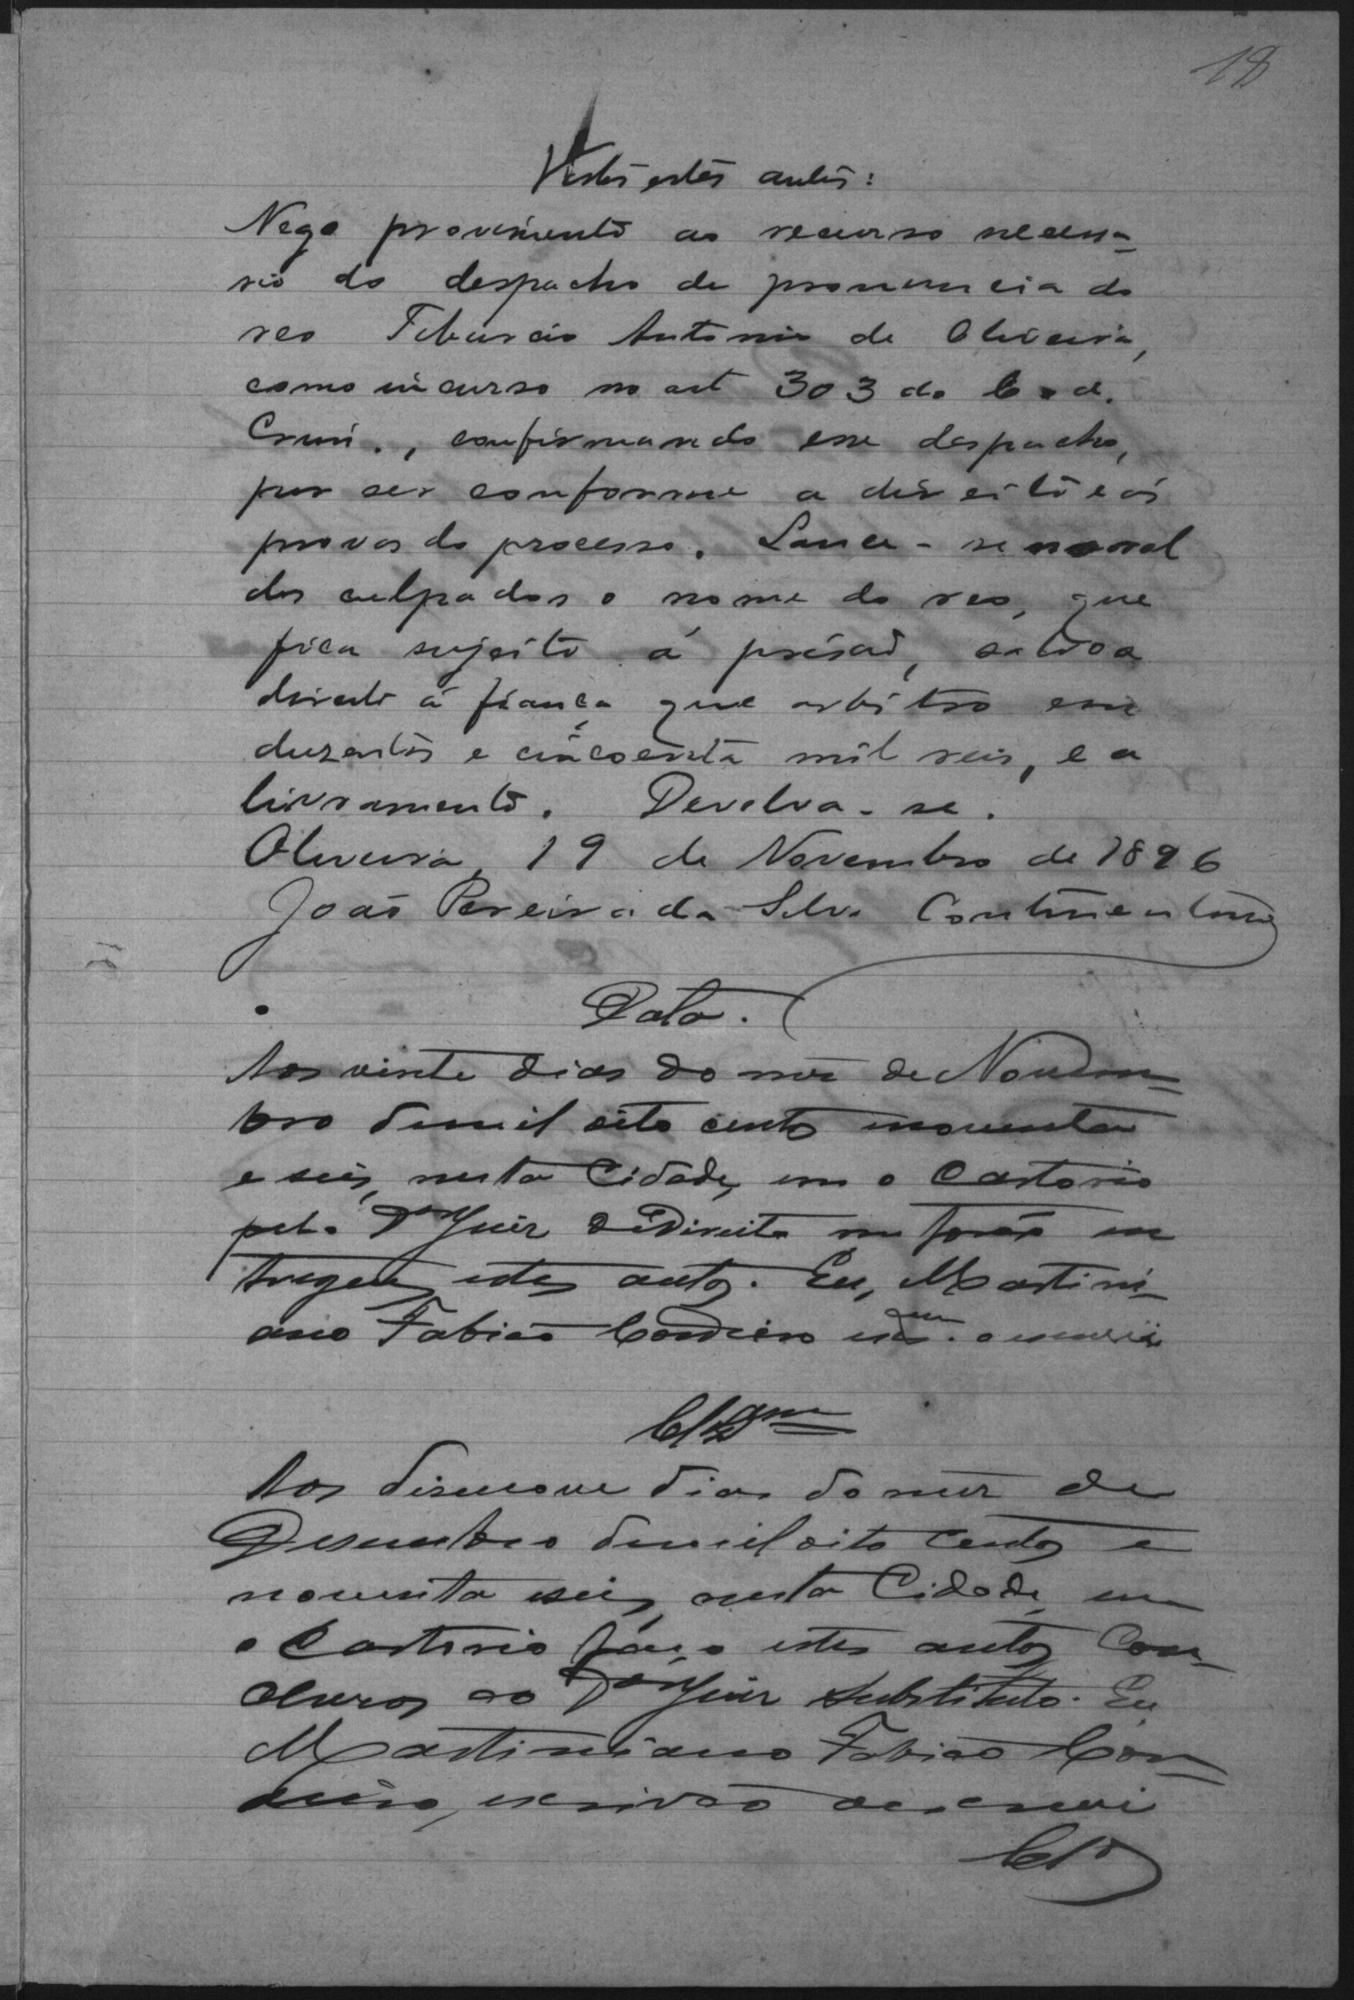 18
Vistos estes autos:
Nego provimento ao recurso necessa-
rio do despacho de pronuncia do
reo Tiburcio Antonio de Oliveira,
como incurso no art 303 do Cod.
Crim., confirmando esse despacho,
por ser conforme a direito e ás
provas do processo. Lance-se no rol
dos culpados o nome do reo, que
fica sujeito á prisaõ, salvo o
direito á fiança que arbitro em
duzentos e cincoenta mil reis, e a
livramento. Devolva-se.
Oliveira, 19 de Novembro de 1896
Joaõ Pereira da Silva Continentino
Data.
Aos vinte dias do mez de Novem-
bro de mil oito centos noventa
e seis, nesta Cidade, em o Cartorio
pelo Dor Juiz de Direito me foraõ en
tregues estes autos. Eu, Martini-
ano Fabiaõ Cordeiro o escrevi
Clsam
Aos disenove dias do mez de
Desembro de mil oito centos e
noventa e seis, nesta Cidade, em
o Cartorio faço estes autos Con-
clusos ao Dor Juiz Substituto. Eu
Martiniano Fabiaõ Cor-
deiro, escrivaõ o escrevi
Clos